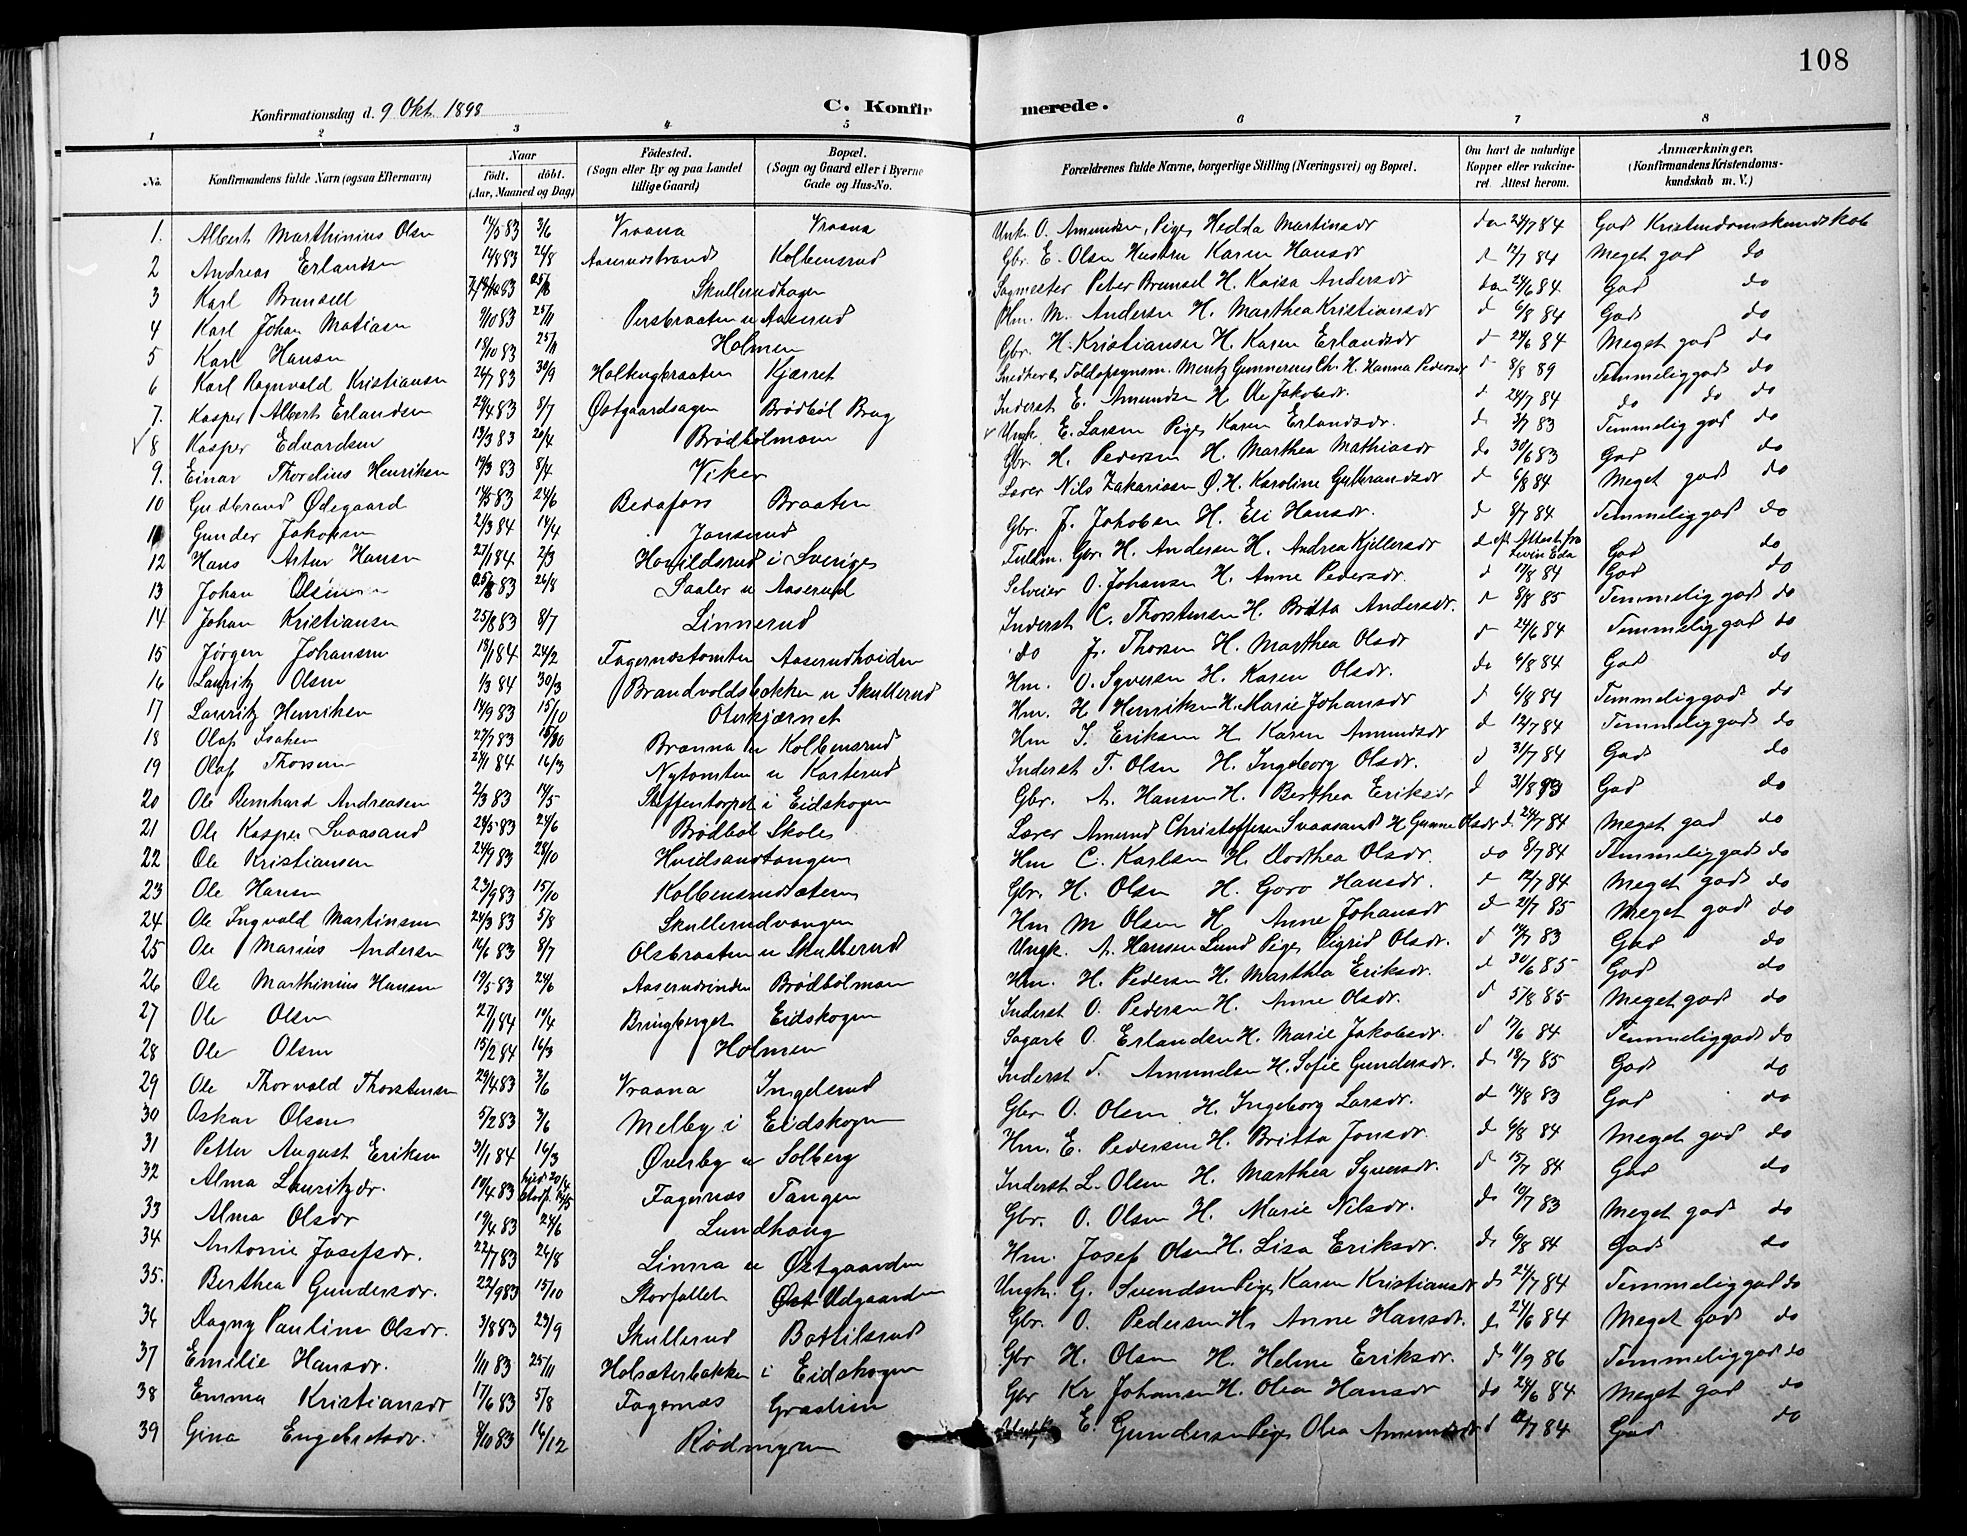 108
Konfirmationsdag d. 9 Okt. 1898
C. Konfirmerede.
1 2 3 4 5 6 7 8
No. Konfirmandens fulde Navn (ogsaa Efternavn) Naar født. døbt. (Aar, Maaned og Dag) Fødested. (Sogn eller By og paa Landet tillige Gaard) Bopæl. (Sogn og Gaard eller i Byerne Gade og Hus-No. Forældrenes fulde Navne, borgerlige Stilling (Næringsvei) og Bopæl. Om havt de naturlige Kopper eller vakcineret. Attest herom. Anmærkninger. (Konfirmandens Kristendomskundskab m. V.)
1. Albert Marthinius Olsn 14/5 83 3/6 Vraana Vraana Unk. O. Amundsen, Pige Hedda Martinsdr do 24/7 84 God Kristendomskundskab
2 Andreas Erlandsen 14/8 83 26/8 Aaserudstrand Kolbensrud Gbr. E. Olsen Hustru Karen Hansdr d 12/7 84 Meget god do
3 Karl Brunsell Skullerudhagen Sagmester Peter Brunsel H. Kaisa Andersdr do 24/6 84 God do
4 Karl Johan Matiasn 9/10 83 25/11 Persbraaten u Aaserud Hm. M. Andersn H. Marthea Kristiansdr d 6/8 84 God do
5 Karl Hansn 18/10 83 25/11 Holmen Gbr. H. Kristiansen H. Karen Erlandsdr d 24/6 84 Meget god do
6 Karl Ragnvald Kristiansn 26/7 83 30/9 Kjærret H. Hanna Pedersdr d 8/8 89 Temmelig god do
7. Kasper Albert Erlandsen 29/4 83 8/7 Østgaardsagen Brødbøl Brug Inderst E. Amundsn H. Ole Jakobsdr. d 24/7 84 do do do
8 Kasper Edvardsen 13/3 83 20/4 Brødbølmoen Ungk. E. Larsen Pige Karen Erlandsdr. d 3/7 83 Temmelig god do
9. Einar Thorelius Henriksen 19/3 83 8/4 Viker Gbr. H. Pedersen H. Marthea Mathiasdr do 30/6 83 God do
10 Gudbrand Ødegaard 14/5 83 24/6 Bedafors Braaten Lærer Nils Zakariasen Ø. H. Karoline Gulbrandsdr d 6/8 84 Meget god do
11 Gunder Jakobsn 21/3 84 14/4 Jonsrud Gbr. J. Jakobsen H. Eli Hansdr. d 8/7 84 Temmelig god do
12 Hans Artur Hansn 27/1 84 2/3 Hovildsrud i Sverige Fuldm. Gbr. H. Andersen H. Andrea Kjellersdr d ef. Attest fra Eda God do
13 Johan Olsen 26/8 Saaler u Aaserud Selveier O. Johansen H. Anne Pedersdr. d 17/8 84 God do
14 Johan Kristiansn 25/5 83 8/7 Linnerud Inderst C. Thorstensen H. Britta Andersdr. d 8/8 85 Temmelig god do
15 Jørgen Johansn 18/1 84 24/2 Fagernæstomten Aaserudheiden do J. Thorsen H. Marthea Olsdr d 24/6 84 Temmelig god do
16 Lauritz Olsn 1/3 84 30/3 Brandvoldsbakken u Skullerud Hm. O. Syversen H. Karen Olsdr. do 6/8 84 God do
17 Lauritz Henriksn 14/9 83 15/10 Oterkjærnet Hm. H. Henriksen H. Marie Johansdr d 6/8 84 Temmelig god do
18 Olaf Isaksn 27/7 83 Brænna u Kolbensrud Hm S. Eriksen H. Karen Amundsdr d 12/7 84 Temmelig god do
19 Olaf Thorsen 25/1 84 16/3 Nytomten u Kasterud Inderst T. Olsn H. Ingeborg Olsdr. d 31/7 84 God do
20 Ole Bernhard Andreasen 2/3 83 14/5 Steffentorpet i Eidskogen Gbr. A. Hansen H. Berthea Eriksdr d 31/8 93 God do
21 Ole Kasper Svaasand 24/5 83 24/6 Brødbøl Skole Lærer Amund Christoffersen Svaasand H Gunne Olsdr d 24/7 84 Meget god do
22 Ole Kristiansen 24/9 83 28/10 Hvidsandtangen Hm C. Karlsen H. Dorthea Olsdr. do 8/7 84 Temmelig god do
23 Ole Hansn 23/9 83 15/10 Kolbensrudsæteren Gbr. H. Olsen H. Goro Hansdr. d 12/7 84 Meget god do
24 Ole Ingvald Martinsen 24/3 83 5/8 Skullerudvangen Hm M Olsen H. Anne Johansdr d 21/7 85 Meget god do
25 Ole Marius Andersn 14/6 83 8/7 Olsbraaten u Skullerud Ungk. A. Hansen Lund Pige Sigrid Olsdr. d 14/7 83 God do
26 Ole Marthinius Hansn 19/5 83 24/6 Aaserudvinden Brødbølmoen Hm. H. Pedersen H. Marthea Eriksdr. d 30/6 85 God do
27 Ole Olsn 27/1 84 14/4 Bringberget Eidskogen Inderst O. Pedersen H. Anne Olsdr. d 5/8 85 Meget god do
28 Ole Olsn 15/2 84 16/3 Holmen Sagarb O. Erlandsen H. Marie Jakobsdr. d 17/6 84 Temmelig god do
29 Ole Thorvald Thorstensen 29/4 83 3/6 Vraana Ingelsrud Inderst T. Amundsen H. Sofie Gundersdr. d 18/7 85 God do
30 Oskar Olsen 5/2 83 3/6 Melby i Eidskogen Gbr O. Olsen H. Ingeborg Larsdr. d 14/8 83 God do
31 Petter August Eriksn 31/1 84 16/3 Øverby u Solberg Hm. E. Pedersen H. Britta Jonsdr. d 6/8 84 Meget god do
32 Alma Lauritzdr. 10/4 83 hjd. 20/4 Fagernæs Tangen Inderst L. Olsen H. Marthea Syversdr. d 15/7 84 God do
33 Alma Olsdr 19/4 83 24/6 Lundhaug Gbr. O. Olsen H. Marie Nilsdr. do 10/7 83 Meget god do
34 Antonie Josefsdr. 22/7 83 26/8 Linna u Østgaarden Hm. Josef Olsen H. Lisa Eriksdr. d 6/8 84 God do
35. Berthea Gundersdr. 22/9 83 15/10 Storfallet Øst Udgaarden Ungk. G. Svendsen Pige Karen Kristiansdr d 24/7 84 Temmelig god do
36 Dagny Pauline Olsdr. 3/8 83 23/9 Skullerud Bottilsrud Gbr. O. Pedersen H. Anne Hansdr. d 24/6 84 Meget god do
37 Emilie Hansdr. 1/11 83 25/11 Holsæterbakken i Eidskogen Gbr H. Olsen H. Helene Eriksdr. d 11/9 86 Temmelig god do
38 Emma Kristiansdr 17/6 83 5/8 Fagernæs Graslien Gbr Kr. Johansen H. Olea Hansdr do 24/6 84 Meget god do
39 Gina Engebretsdr. 8/10 83 16/12 Rødmyren E. Gundersen Pige Olea Amundsdr d 12/7 84 God do